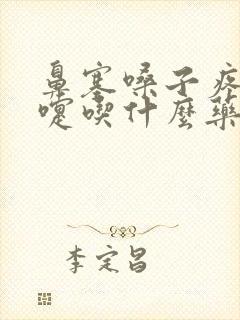 鼻塞嗓子疼
嚏喫什麼藥
李定昌